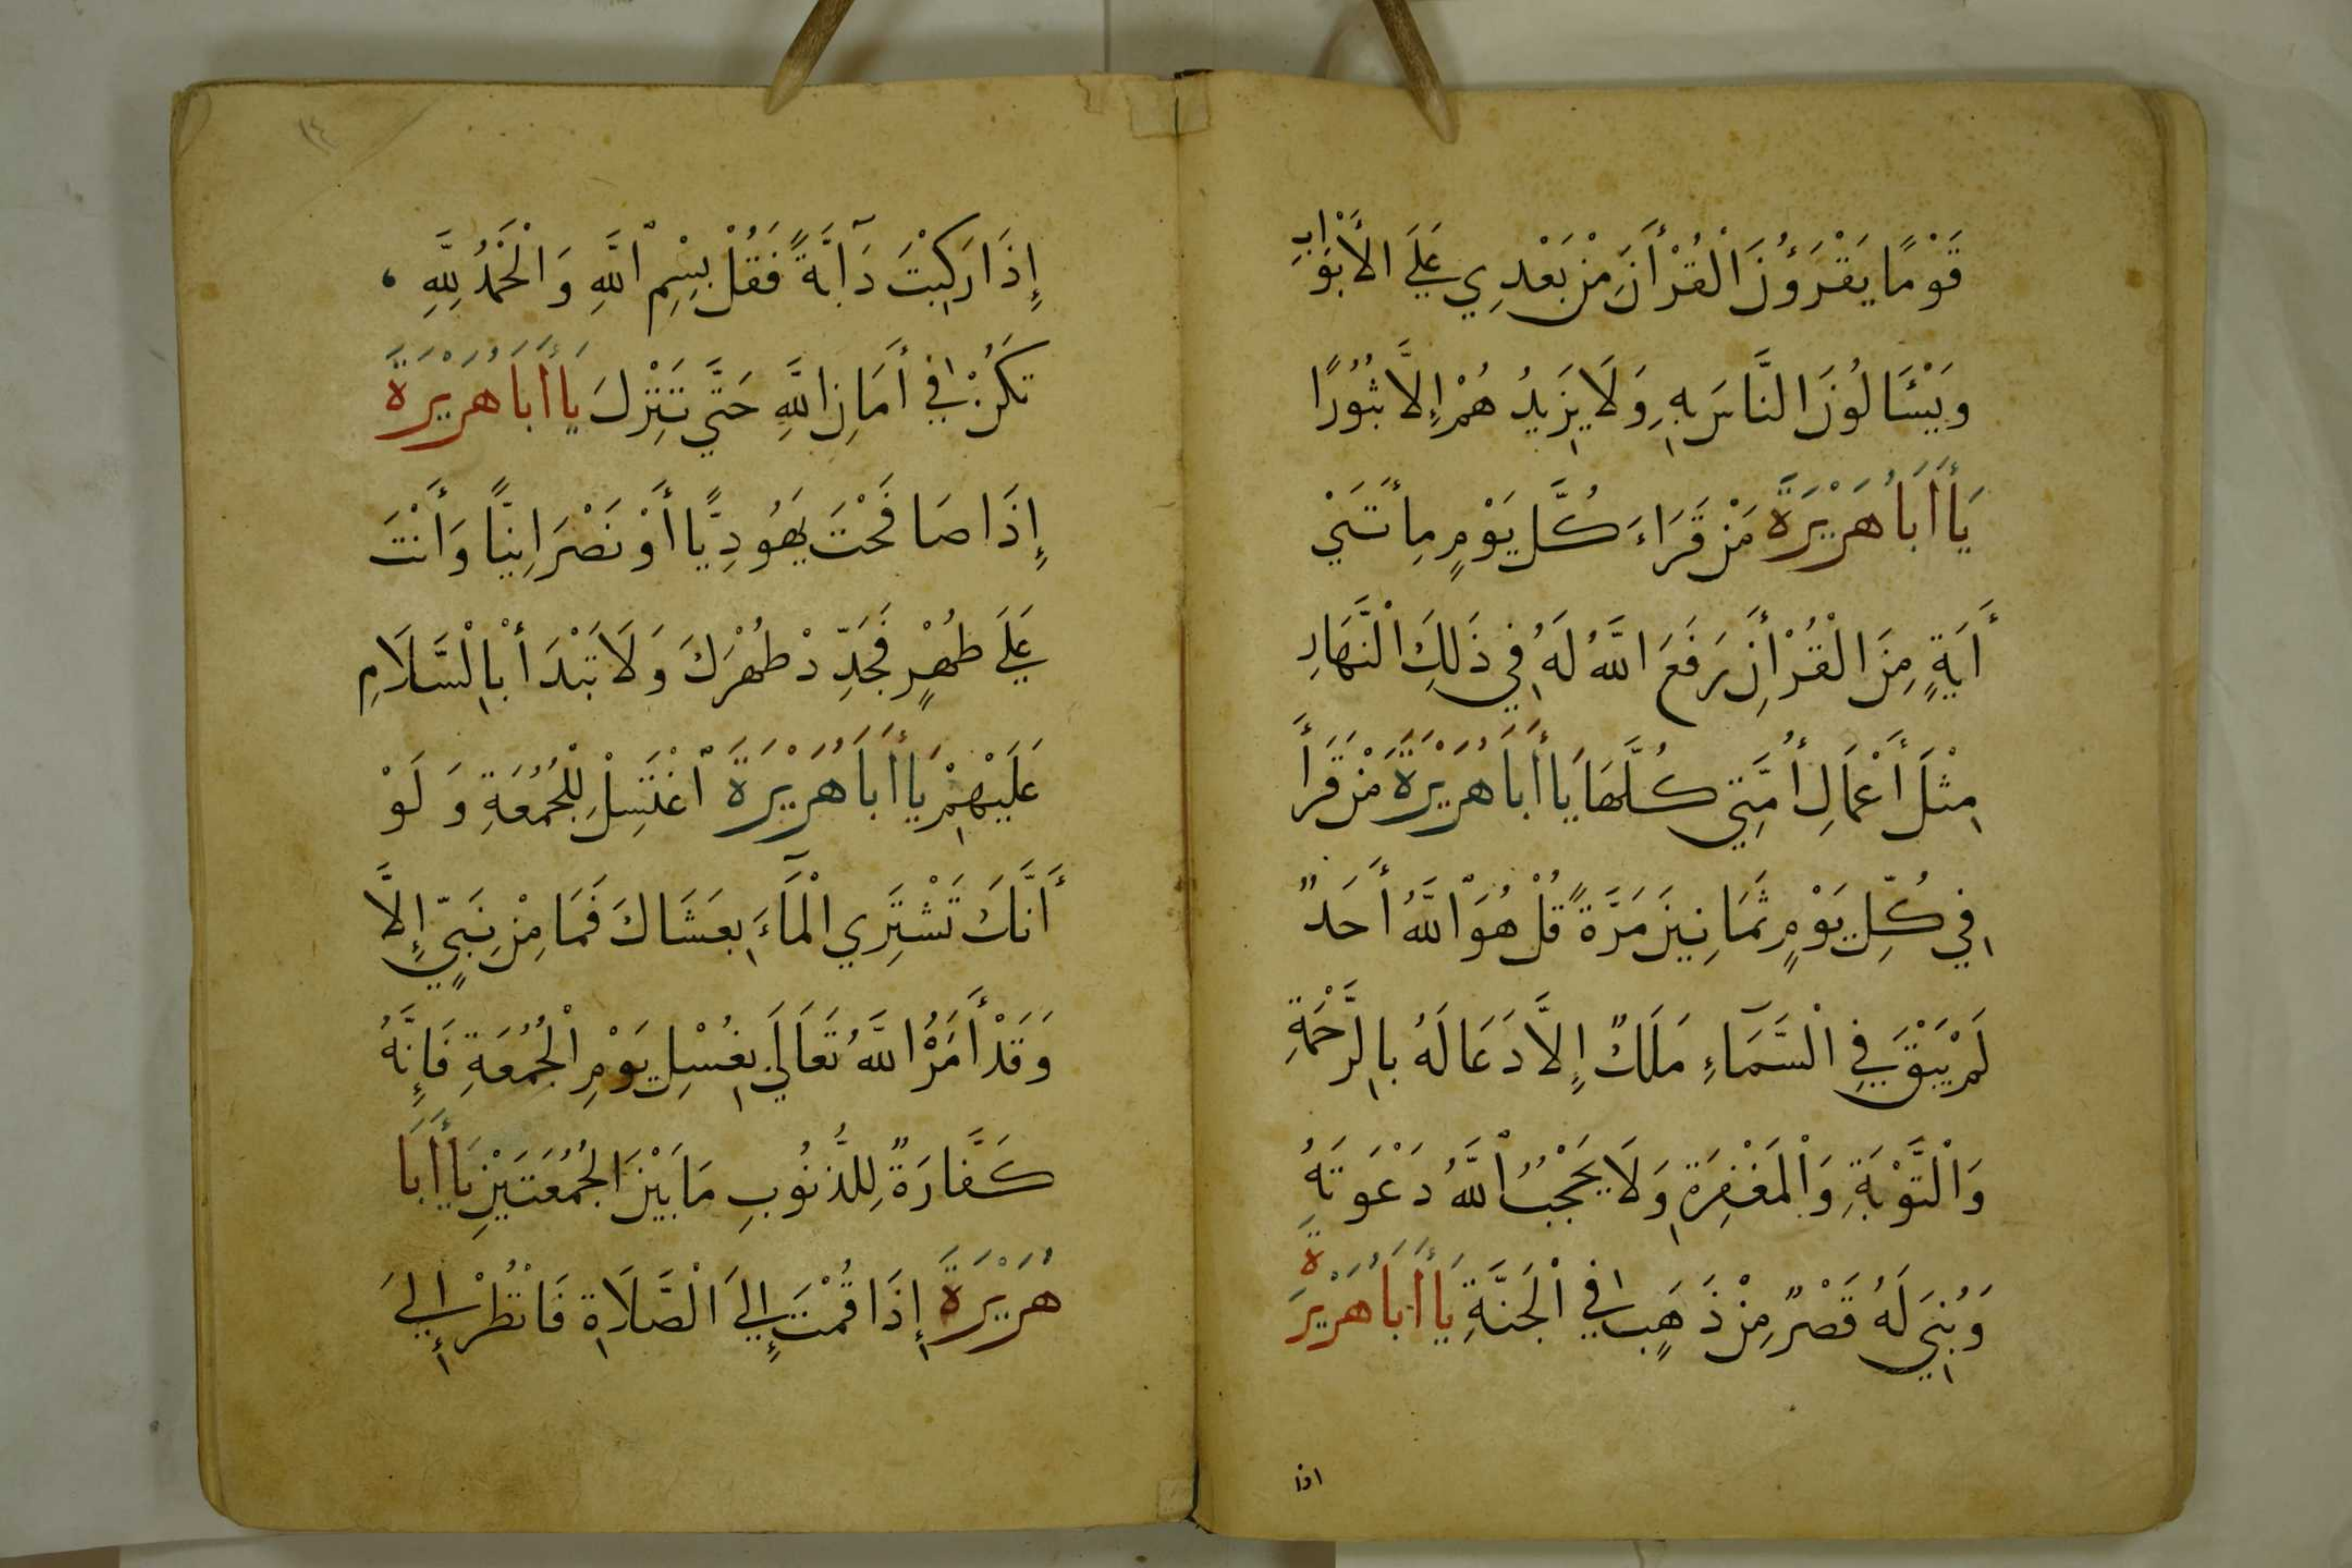 قَوْمًا يَقْرَؤُنَ الْقُرْأَنَ مِنْ بَعْدِي عَلَى الأَبْوَابِ
وَيَسْئَالُونَ النَّاسَ بِهِ وَلَا يَزِيدُ هُمْ إِلَّا ثُبُورًا
يَا أَبَا هُرَيْرَةَ مَنْ قَرَاءَ كُلَّ يَوْمٍ مِائَتَيْ
أَيَةٍ مِنَ الْقُرْأَنِ رَفَعَ اللهُ لَهُ فِي ذَلِكَ الْنَّهَارِ
مِثْلَ أَعْمَالِ أُمَّتِي كُلَّهَا يَا أَبَا هُرَيْرَةَ مَنْ قَرَأَ
فِي كُلِّ يَوْمٍ ثَمَانِينَ مَرَّةً قُلْ هُوَ اللَّهُ أَحَدٌ
لَمْ يَبْقَ فِي الْسَّمَآءِ مَلَكٌ إِلَّا دَعَا لَهُ بِالرَّحْمَةِ
وَالْتَّوْبَةِ وَالْمَغْفِرَةِ وَلَا يَحْجُبُ اللَّهُ دَعْوَتَهُ
وَبُنِيَ لَهُ قَصْرٌ مِنْ ذَهَبٍ فِي الْجَنَّةِ يَا أَبَا هُرَيْرَةَ
اذا
١٤
إِذَا رَكِبْتَ دَآبَّةً فَقُلْ بِسْمِ اللَّهِ وَالْحَمْدُ لِلَّهِ ،
تَكُنْ فِي أَمَانِ اللَّهِ حَتَّى تَنْزِلَ يَا أَبَا هُرَيْرَةَ
إِذَا صَافَحْتَ يَهُودِيًّا أَوْ نَصْرَانِيًّا وَأَنْتَ
عَلَى طُهْرٍ فَجَدِّدْ طُهْرَكَ وَلَا تَبْدَأْ بِالْسَّلَامِ
عَلَيْهِمْ يَا أَبَا هُرَيْرَةَ اغْتَسِلْ لِلْجُمُعَةِ وَلَوْ
أَنَّكَ تَشْتَرِي الْمَآءَ بِعَشَاكَ فَمَا مِنْ نَبِيٍّ إِلَّا
وَقَدْ أَمَرَهُ اللَّهُ تَعَالَى بِغُسْلِ يَوْمِ الْجُمُعَةِ فَإِنَّهُ
كَفَّارَةٌ لِلذُّنُوبِ مَا بَيْنَ الْجُمُعَتَيْنِ يَا أَبَا
هُرَيْرَةَ إِذَا قُمْتَ إِلَى الْصَّلَاةِ فَانْظُرْ إِلَى